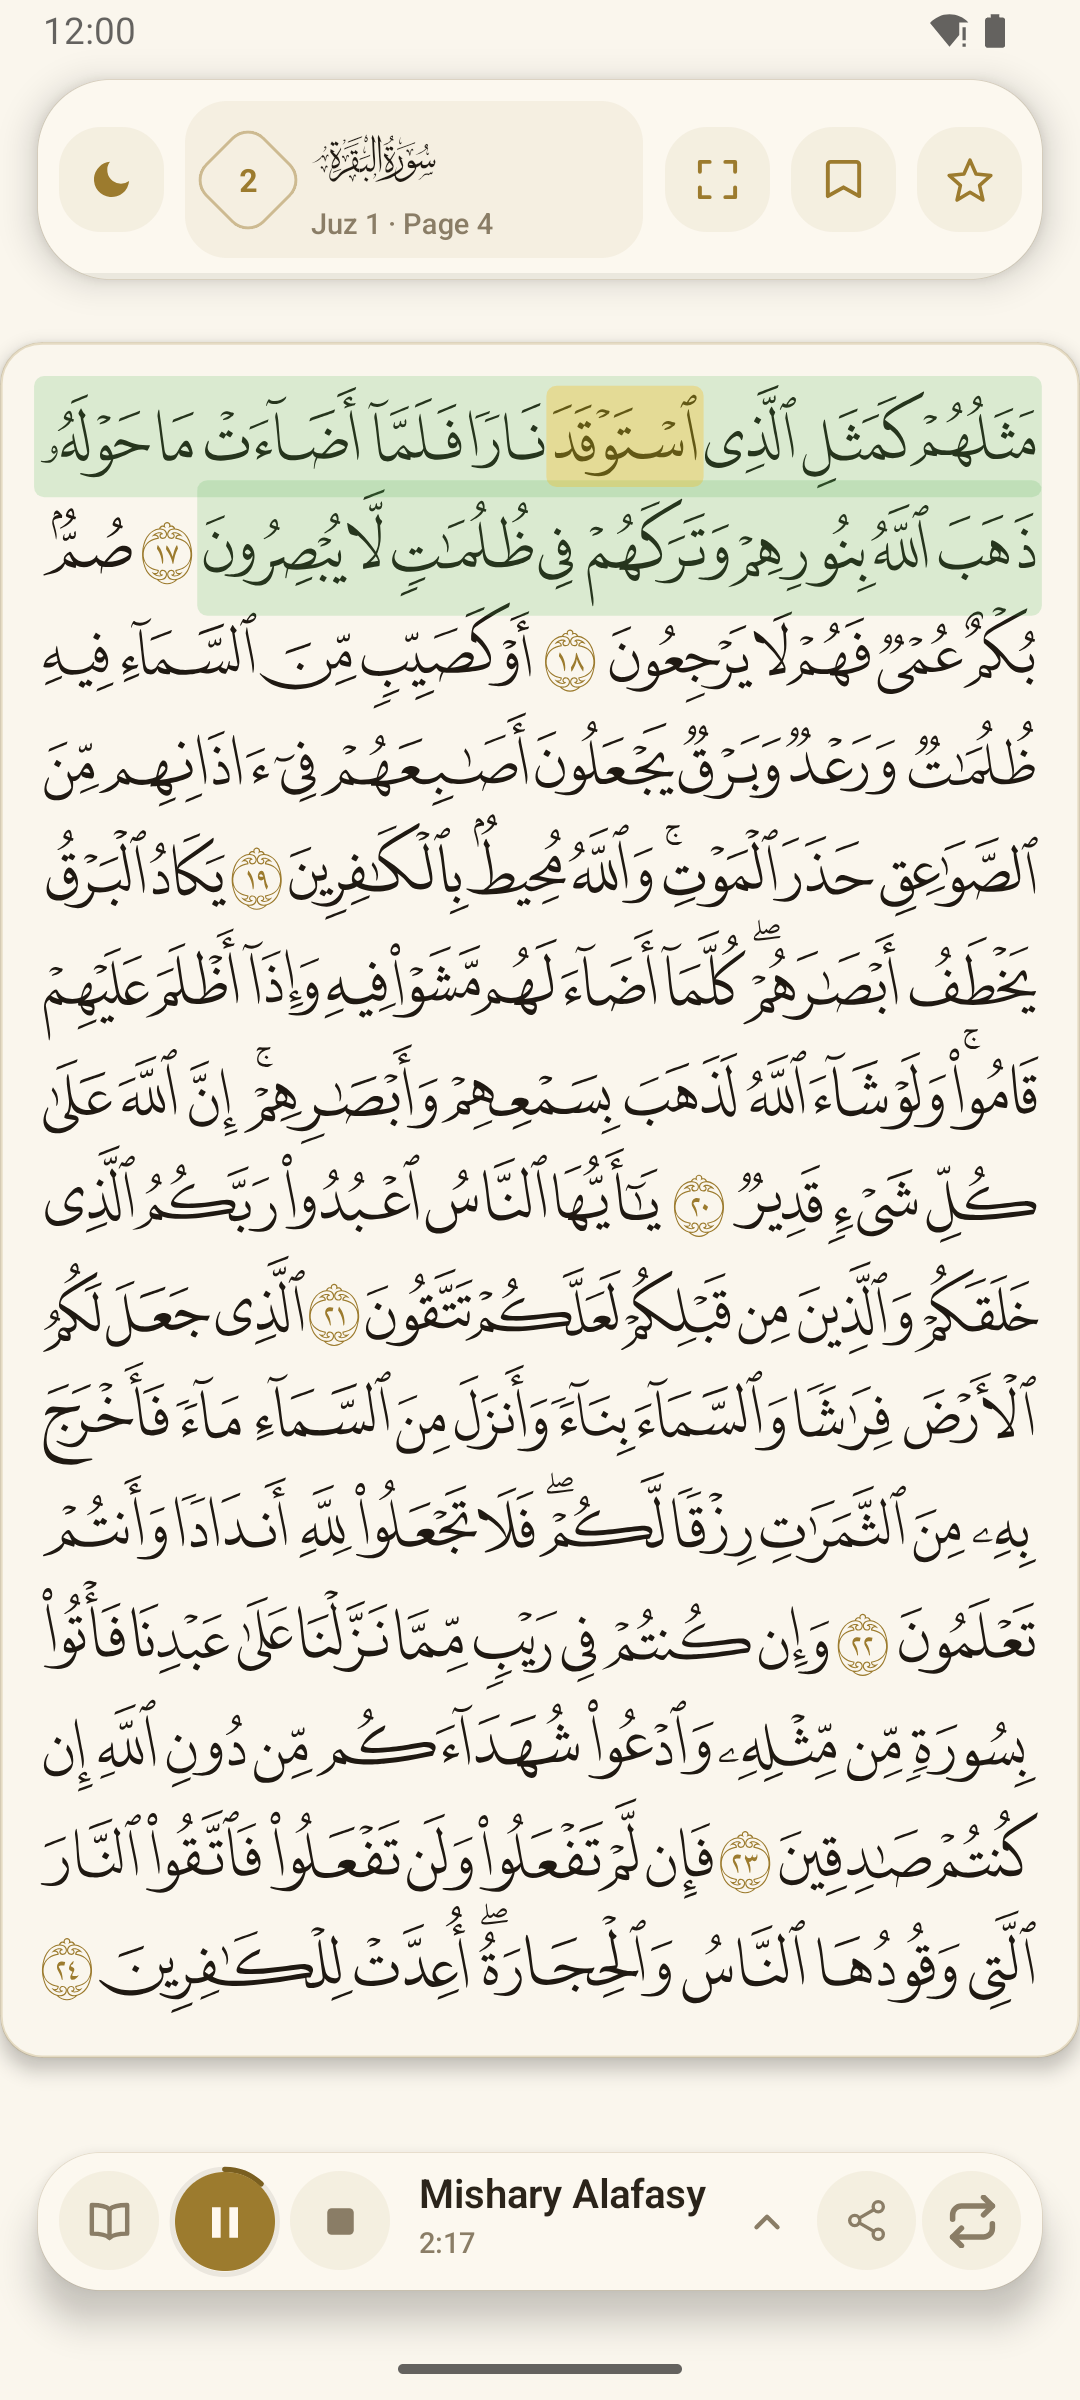 12:00
2
سُورَةُ البَقَرَةِ
Juz 1 · Page 4
مَثَلُهُمْ كَمَثَلِ ٱلَّذِى ٱسْتَوْقَدَ نَارًا فَلَمَّآ أَضَآءَتْ مَا حَوْلَهُۥ
ذَهَبَ ٱللَّهُ بِنُورِهِمْ وَتَرَكَهُمْ فِى ظُلُمَـٰتٍ لَّا يُبْصِرُونَ ١٧ صُمٌّۢ
بُكْمٌ عُمْىٌ فَهُمْ لَا يَرْجِعُونَ ١٨ أَوْ كَصَيِّبٍ مِّنَ ٱلسَّمَآءِ فِيهِ
ظُلُمَـٰتٌ وَرَعْدٌ وَبَرْقٌ يَجْعَلُونَ أَصَـٰبِعَهُمْ فِىٓ ءَاذَانِهِم مِّنَ
ٱلصَّوَٰعِقِ حَذَرَ ٱلْمَوْتِ ۚ وَٱللَّهُ مُحِيطٌۢ بِٱلْكَـٰفِرِينَ ١٩ يَكَادُ ٱلْبَرْقُ
يَخْطَفُ أَبْصَـٰرَهُمْ ۖ كُلَّمَآ أَضَآءَ لَهُم مَّشَوْا۟ فِيهِ وَإِذَآ أَظْلَمَ عَلَيْهِمْ
قَامُوا۟ ۚ وَلَوْ شَآءَ ٱللَّهُ لَذَهَبَ بِسَمْعِهِمْ وَأَبْصَـٰرِهِمْ ۚ إِنَّ ٱللَّهَ عَلَىٰ
كُلِّ شَىْءٍ قَدِيرٌ ٢٠ يَـٰٓأَيُّهَا ٱلنَّاسُ ٱعْبُدُوا۟ رَبَّكُمُ ٱلَّذِى
خَلَقَكُمْ وَٱلَّذِينَ مِن قَبْلِكُمْ لَعَلَّكُمْ تَتَّقُونَ ٢١ ٱلَّذِى جَعَلَ لَكُمُ
ٱلْأَرْضَ فِرَٰشًا وَٱلسَّمَآءَ بِنَآءً وَأَنزَلَ مِنَ ٱلسَّمَآءِ مَآءً فَأَخْرَجَ
بِهِۦ مِنَ ٱلثَّمَرَٰتِ رِزْقًا لَّكُمْ ۖ فَلَا تَجْعَلُوا۟ لِلَّهِ أَندَادًا وَأَنتُمْ
تَعْلَمُونَ ٢٢ وَإِن كُنتُمْ فِى رَيْبٍ مِّمَّا نَزَّلْنَا عَلَىٰ عَبْدِنَا فَأْتُوا۟
بِسُورَةٍ مِّن مِّثْلِهِۦ وَٱدْعُوا۟ شُهَدَآءَكُم مِّن دُونِ ٱللَّهِ إِن
كُنتُمْ صَـٰدِقِينَ ٢٣ فَإِن لَّمْ تَفْعَلُوا۟ وَلَن تَفْعَلُوا۟ فَٱتَّقُوا۟ ٱلنَّارَ
ٱلَّتِى وَقُودُهَا ٱلنَّاسُ وَٱلْحِجَارَةُ ۖ أُعِدَّتْ لِلْكَـٰفِرِينَ ٢٤
Mishary Alafasy
2:17